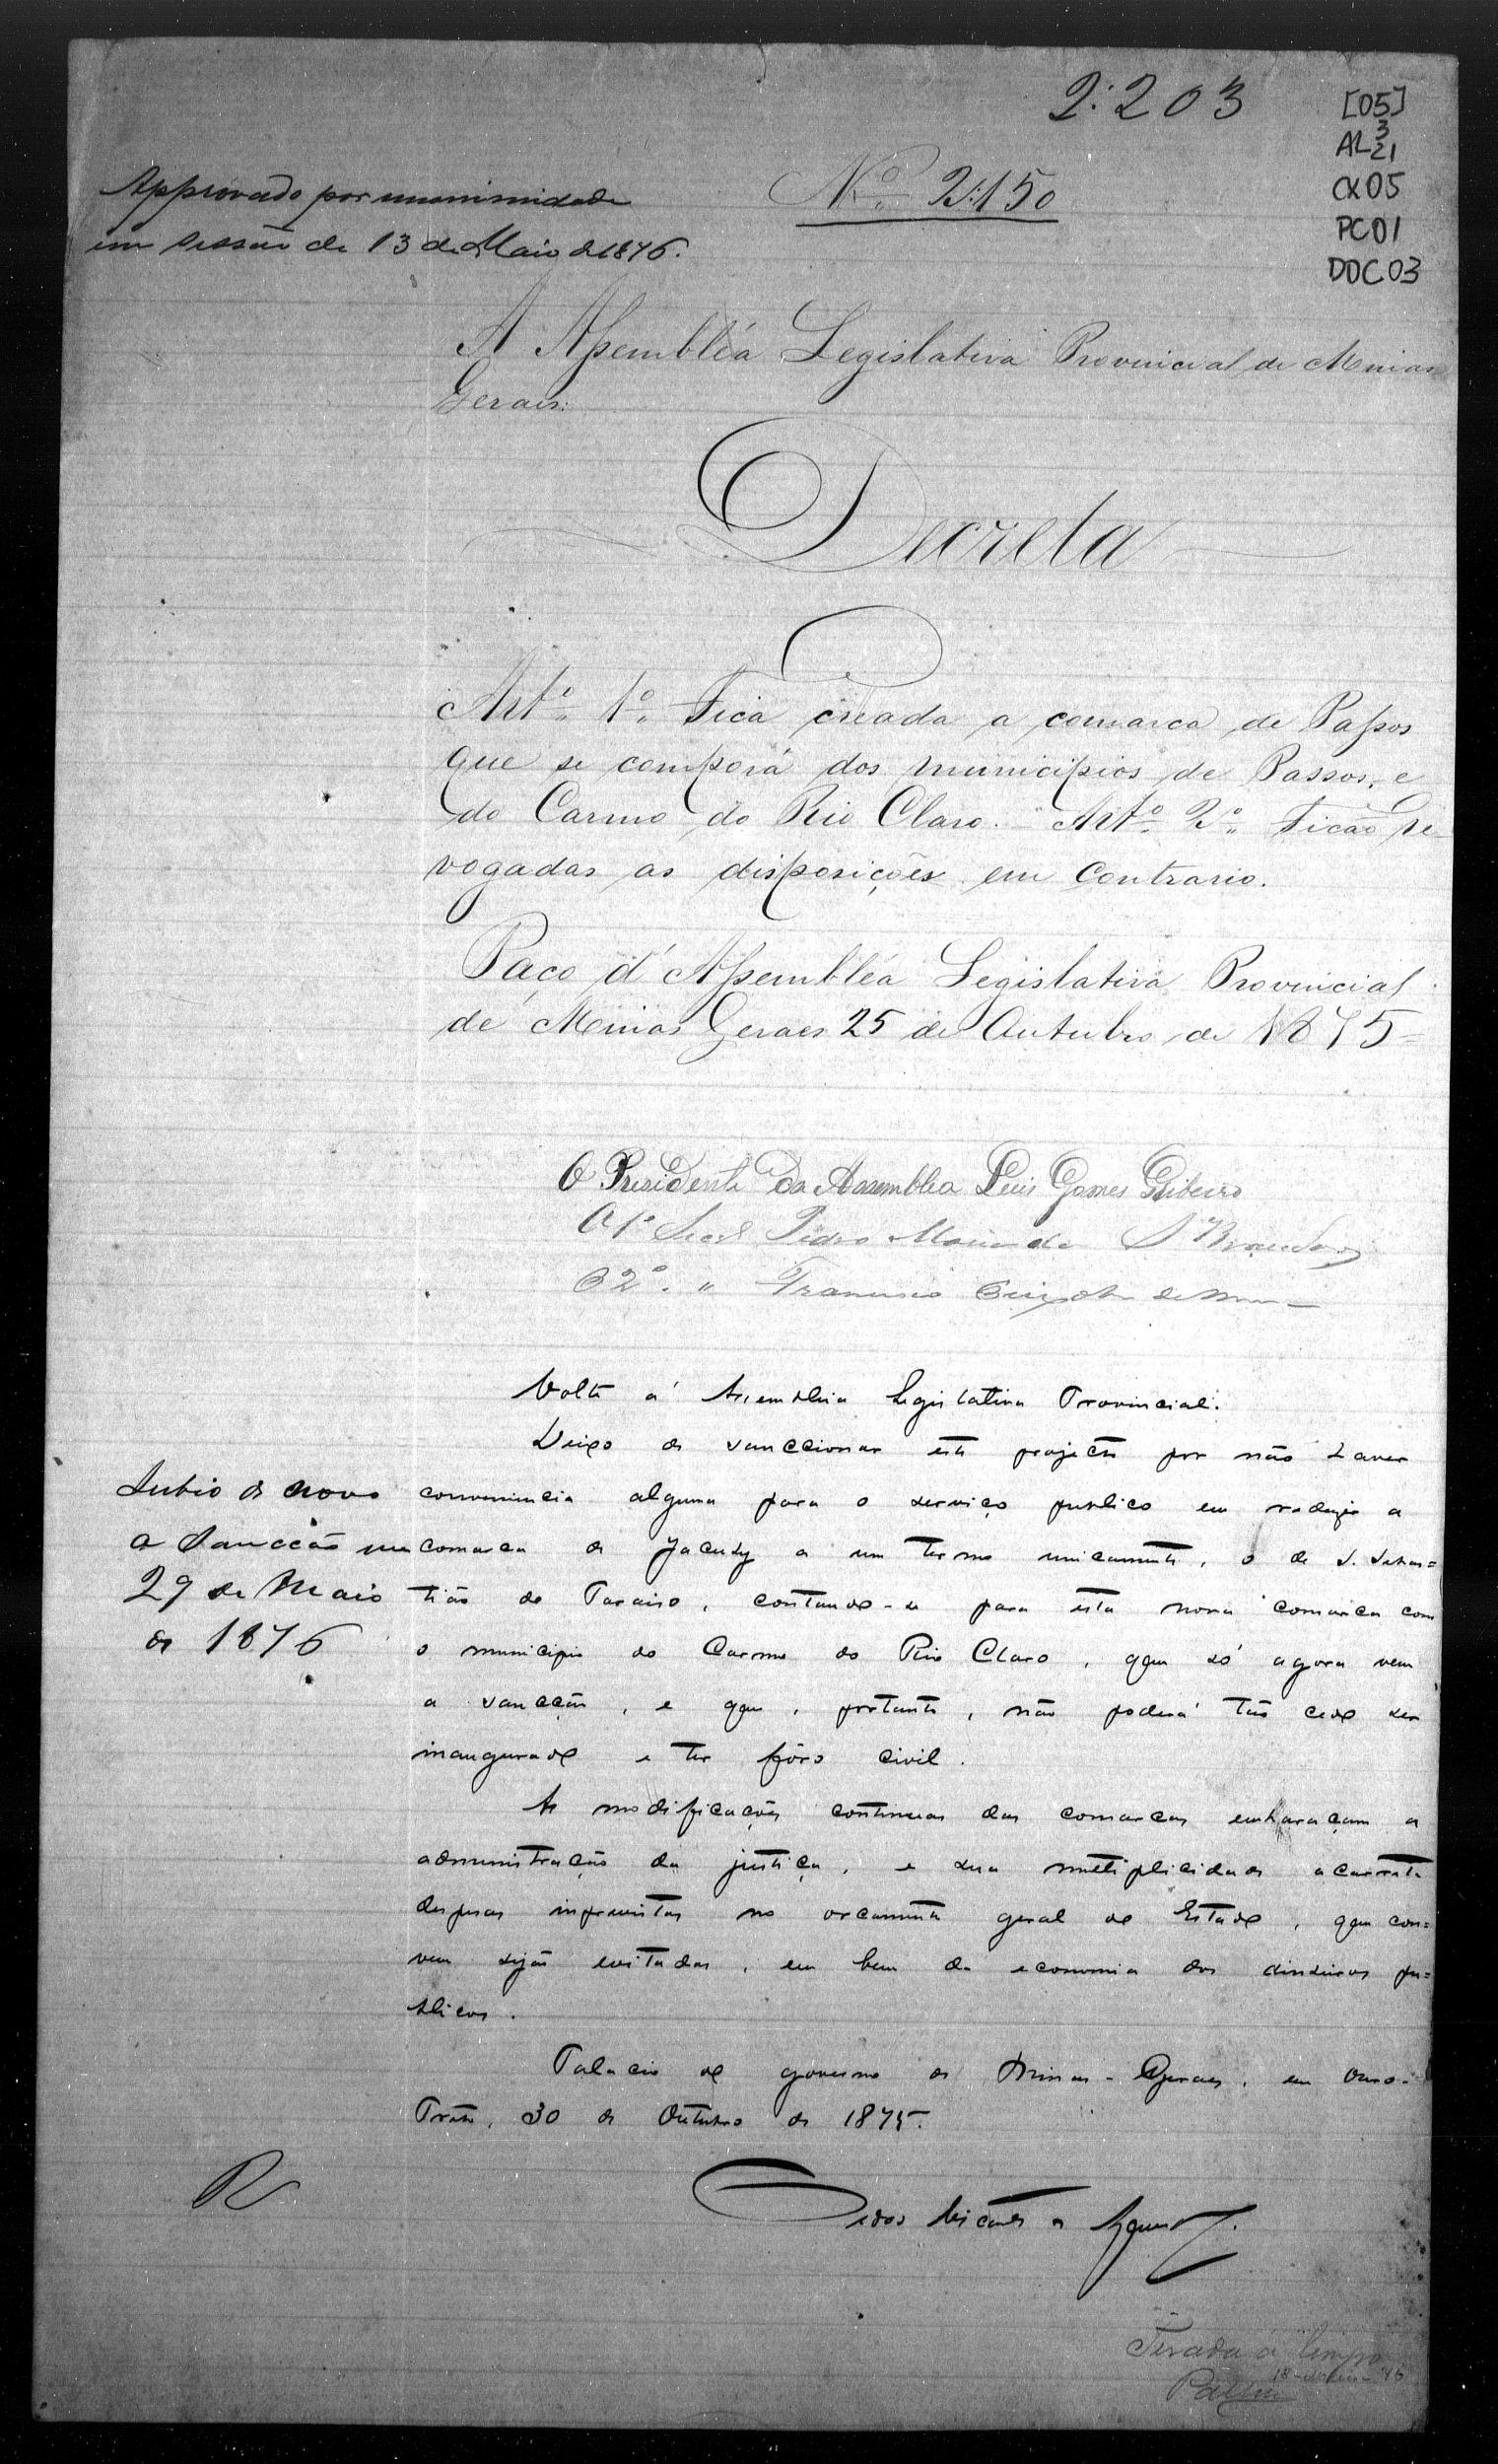 2:203
[05]
AL 3
21
CX 05
PC 01
DOC. 03
Approvado por unanimidade
em sessão de 13 de Maio de 1876.
Nº 2:150
A Assembléa Legislativa Provincial de Minas
Geraes:
Decreta
Artº 1º Fica creada a comarca de Passos
que se comporá dos municipios de Passos, e
do Carmo do Rio Claro. Artº 2º Ficão re-
vogadas as disposições em contrario.
Paço d'Assembléa Legislativa Provincial
de Minas Geraes 25 de Outubro de 1875=
O Presidente da Assemblea Luis Gomes Ribeiro
O 1º Secº Pedro Maria da S. Brandão
O 2º. " Francisco
Volte á Assembléa Legislativa Provincial.
Deixo de sanccionar este projecto por não haver
conveniencia alguma para o serviço publico em reduzir a
comarca de Jacuhy a um termo unicamente, o de S. Sebas=
tião do Paraiso, contando-se para esta nova comarca com
o municipio do Carmo do Rio Claro, que só agora vem
a sancção, e que, portanto, não poderá tão cedo ser
inaugurado e ter fôro civil.
As modificações continuas das comarcas embaraçam a
administração da justiça, e sua multiplicidade acarreta
despesas imprevistas no orcamento geral do Estado, que con=
vem sejão evitadas, em bem da economia dos dinheiros pu=
blicos.
Palacio do governo de Minas-Geraes, em Ouro-
Preto, 30 de Outubro de 1875.
Subio de novo
a Sancção em
29 de Maio
de 1876
R
Pedro Vicente de Azevedo.
Tirada a limpo
18-Maio-76